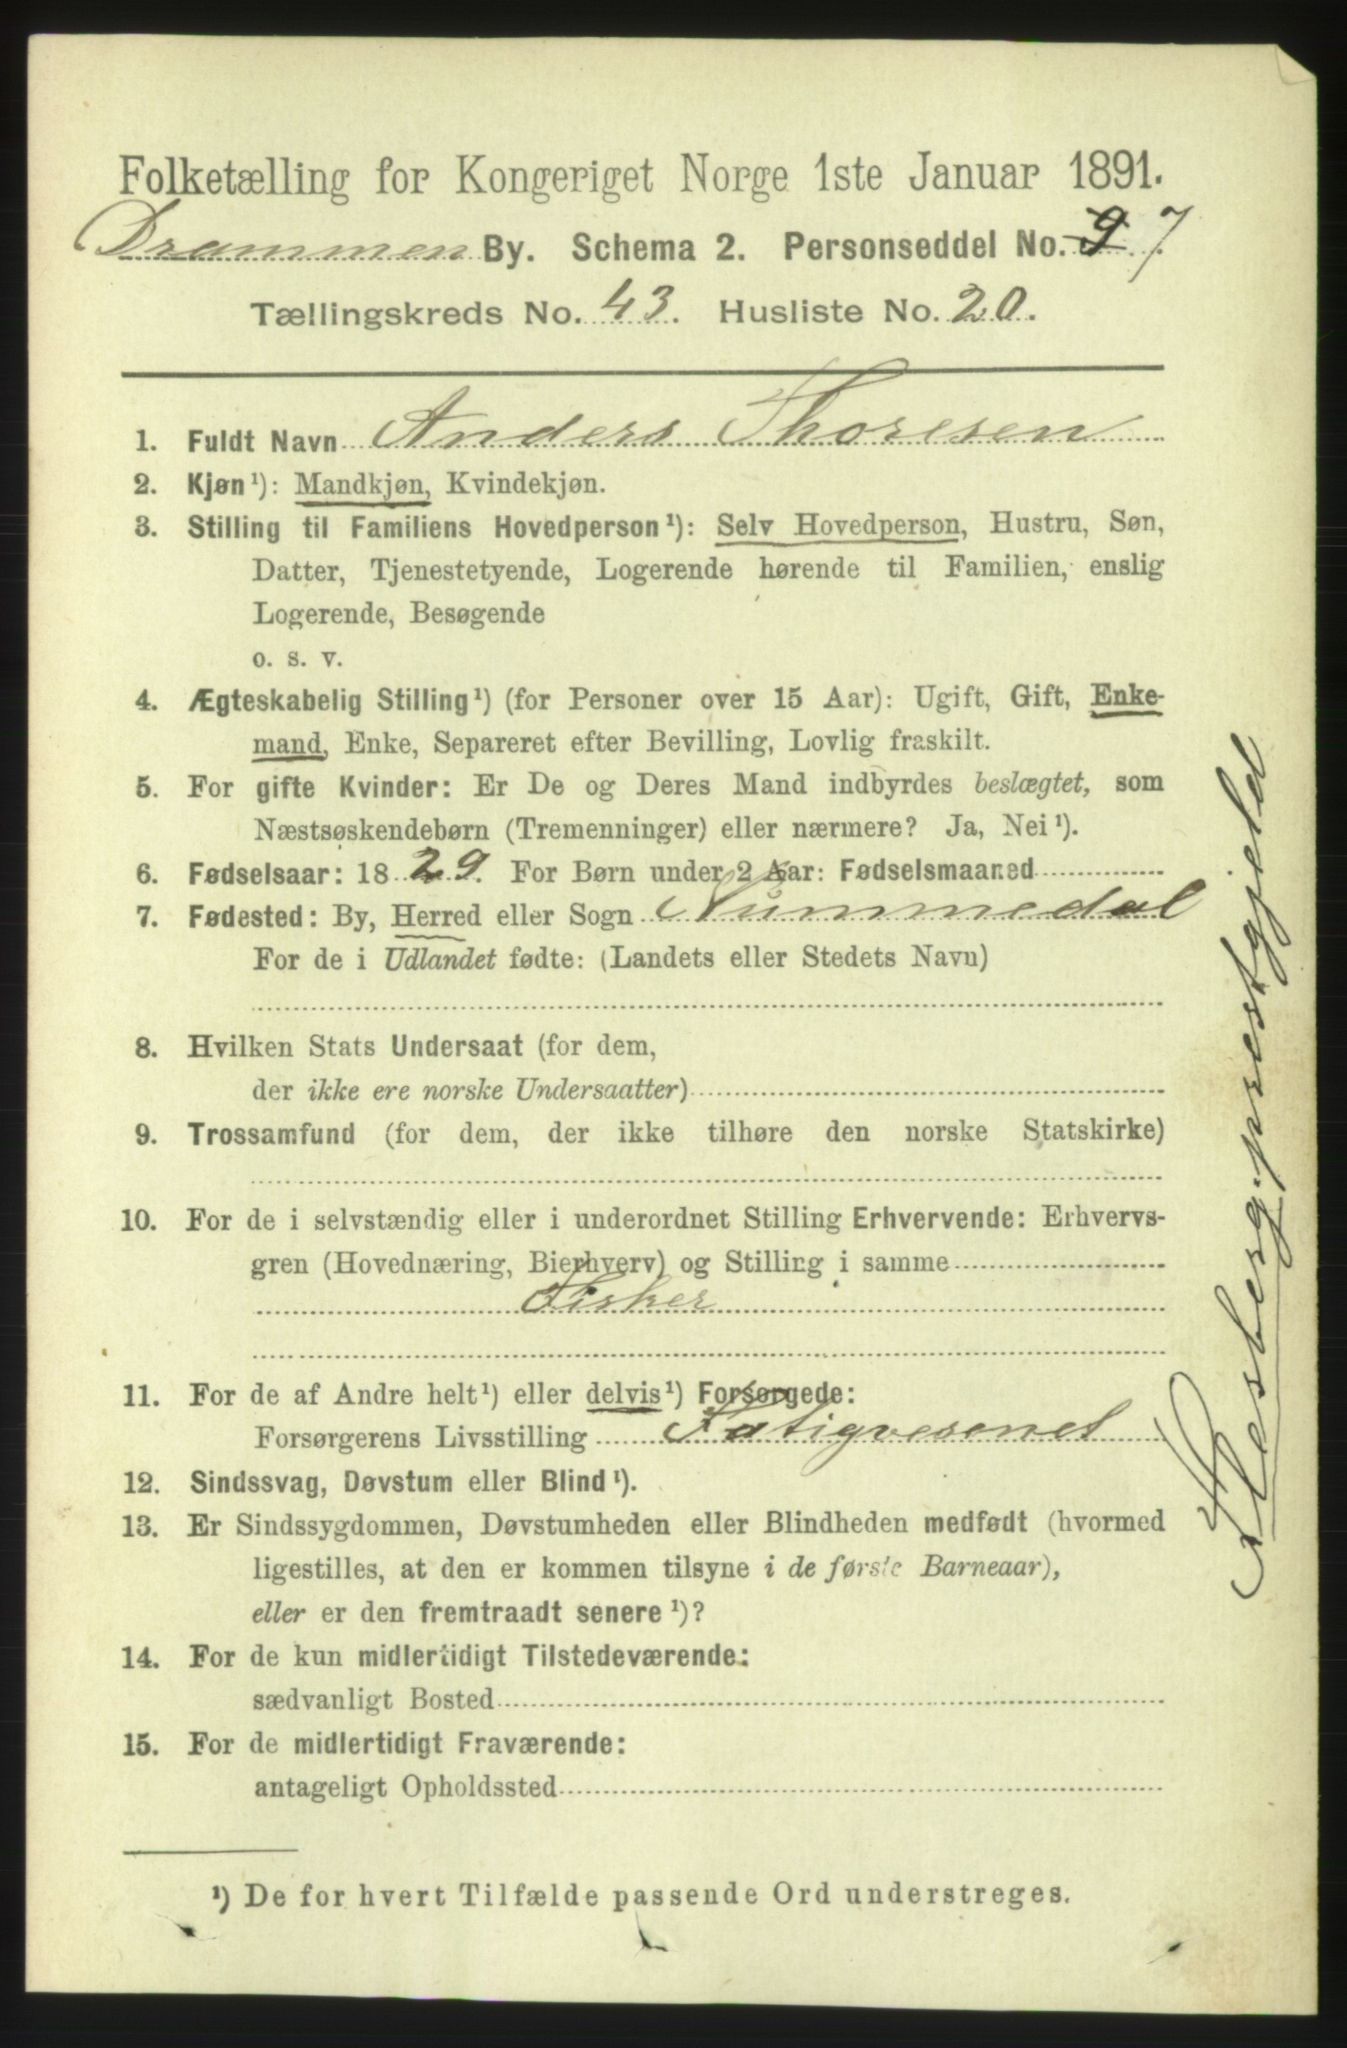 Folketælling for Kongeriget Norge 1ste Januar 1891.
Drammen By. Schema 2. Personseddel No. 9 7
Tællingskreds No. 43. Husliste No. 20.
1. Fuldt Navn Anders Thoresen
2. Kjøn¹): Mandkjøn, Kvindekjøn.
3. Stilling til Familiens Hovedperson¹): Selv Hovedperson, Hustru, Søn,
Datter, Tjenestetyende, Logerende hørende til Familien, enslig
Logerende, Besøgende
o. s. v.
4. Ægteskabelig Stilling¹) (for Personer over 15 Aar): Ugift, Gift, Enke-
mand, Enke, Separeret efter Bevilling, Lovlig fraskilt.
5. For gifte Kvinder: Er De og Deres Mand indbyrdes beslægtet, som
Næstsøskendebørn (Tremenninger) eller nærmere? Ja, Nei¹).
6. Fødselsaar: 1829. For Børn under 2 Aar: Fødselsmaaned
7. Fødested: By, Herred eller Sogn Nummedal
For de i Udlandet fødte: (Landets eller Stedets Navn)
8. Hvilken Stats Undersaat (for dem,
der ikke ere norske Undersaatter)
9. Trossamfund (for dem, der ikke tilhøre den norske Statskirke)
10. For de i selvstændig eller i underordnet Stilling Erhvervende: Erhvervs-
gren (Hovednæring, Bierhverv) og Stilling i samme
Fisker
11. For de af Andre helt¹) eller delvis¹) Forsørgede:
Forsørgerens Livsstilling Fatigvesenet
12. Sindssvag, Døvstum eller Blind¹).
13. Er Sindssygdommen, Døvstumheden eller Blindheden medfødt (hvormed
ligestilles, at den er kommen tilsyne i de første Barneaar),
eller er den fremtraadt senere¹)?
14. For de kun midlertidigt Tilstedeværende:
sædvanligt Bosted
15. For de midlertidigt Fraværende:
antageligt Opholdssted
¹) De for hvert Tilfælde passende Ord understreges.
Flesberg præstgjeld